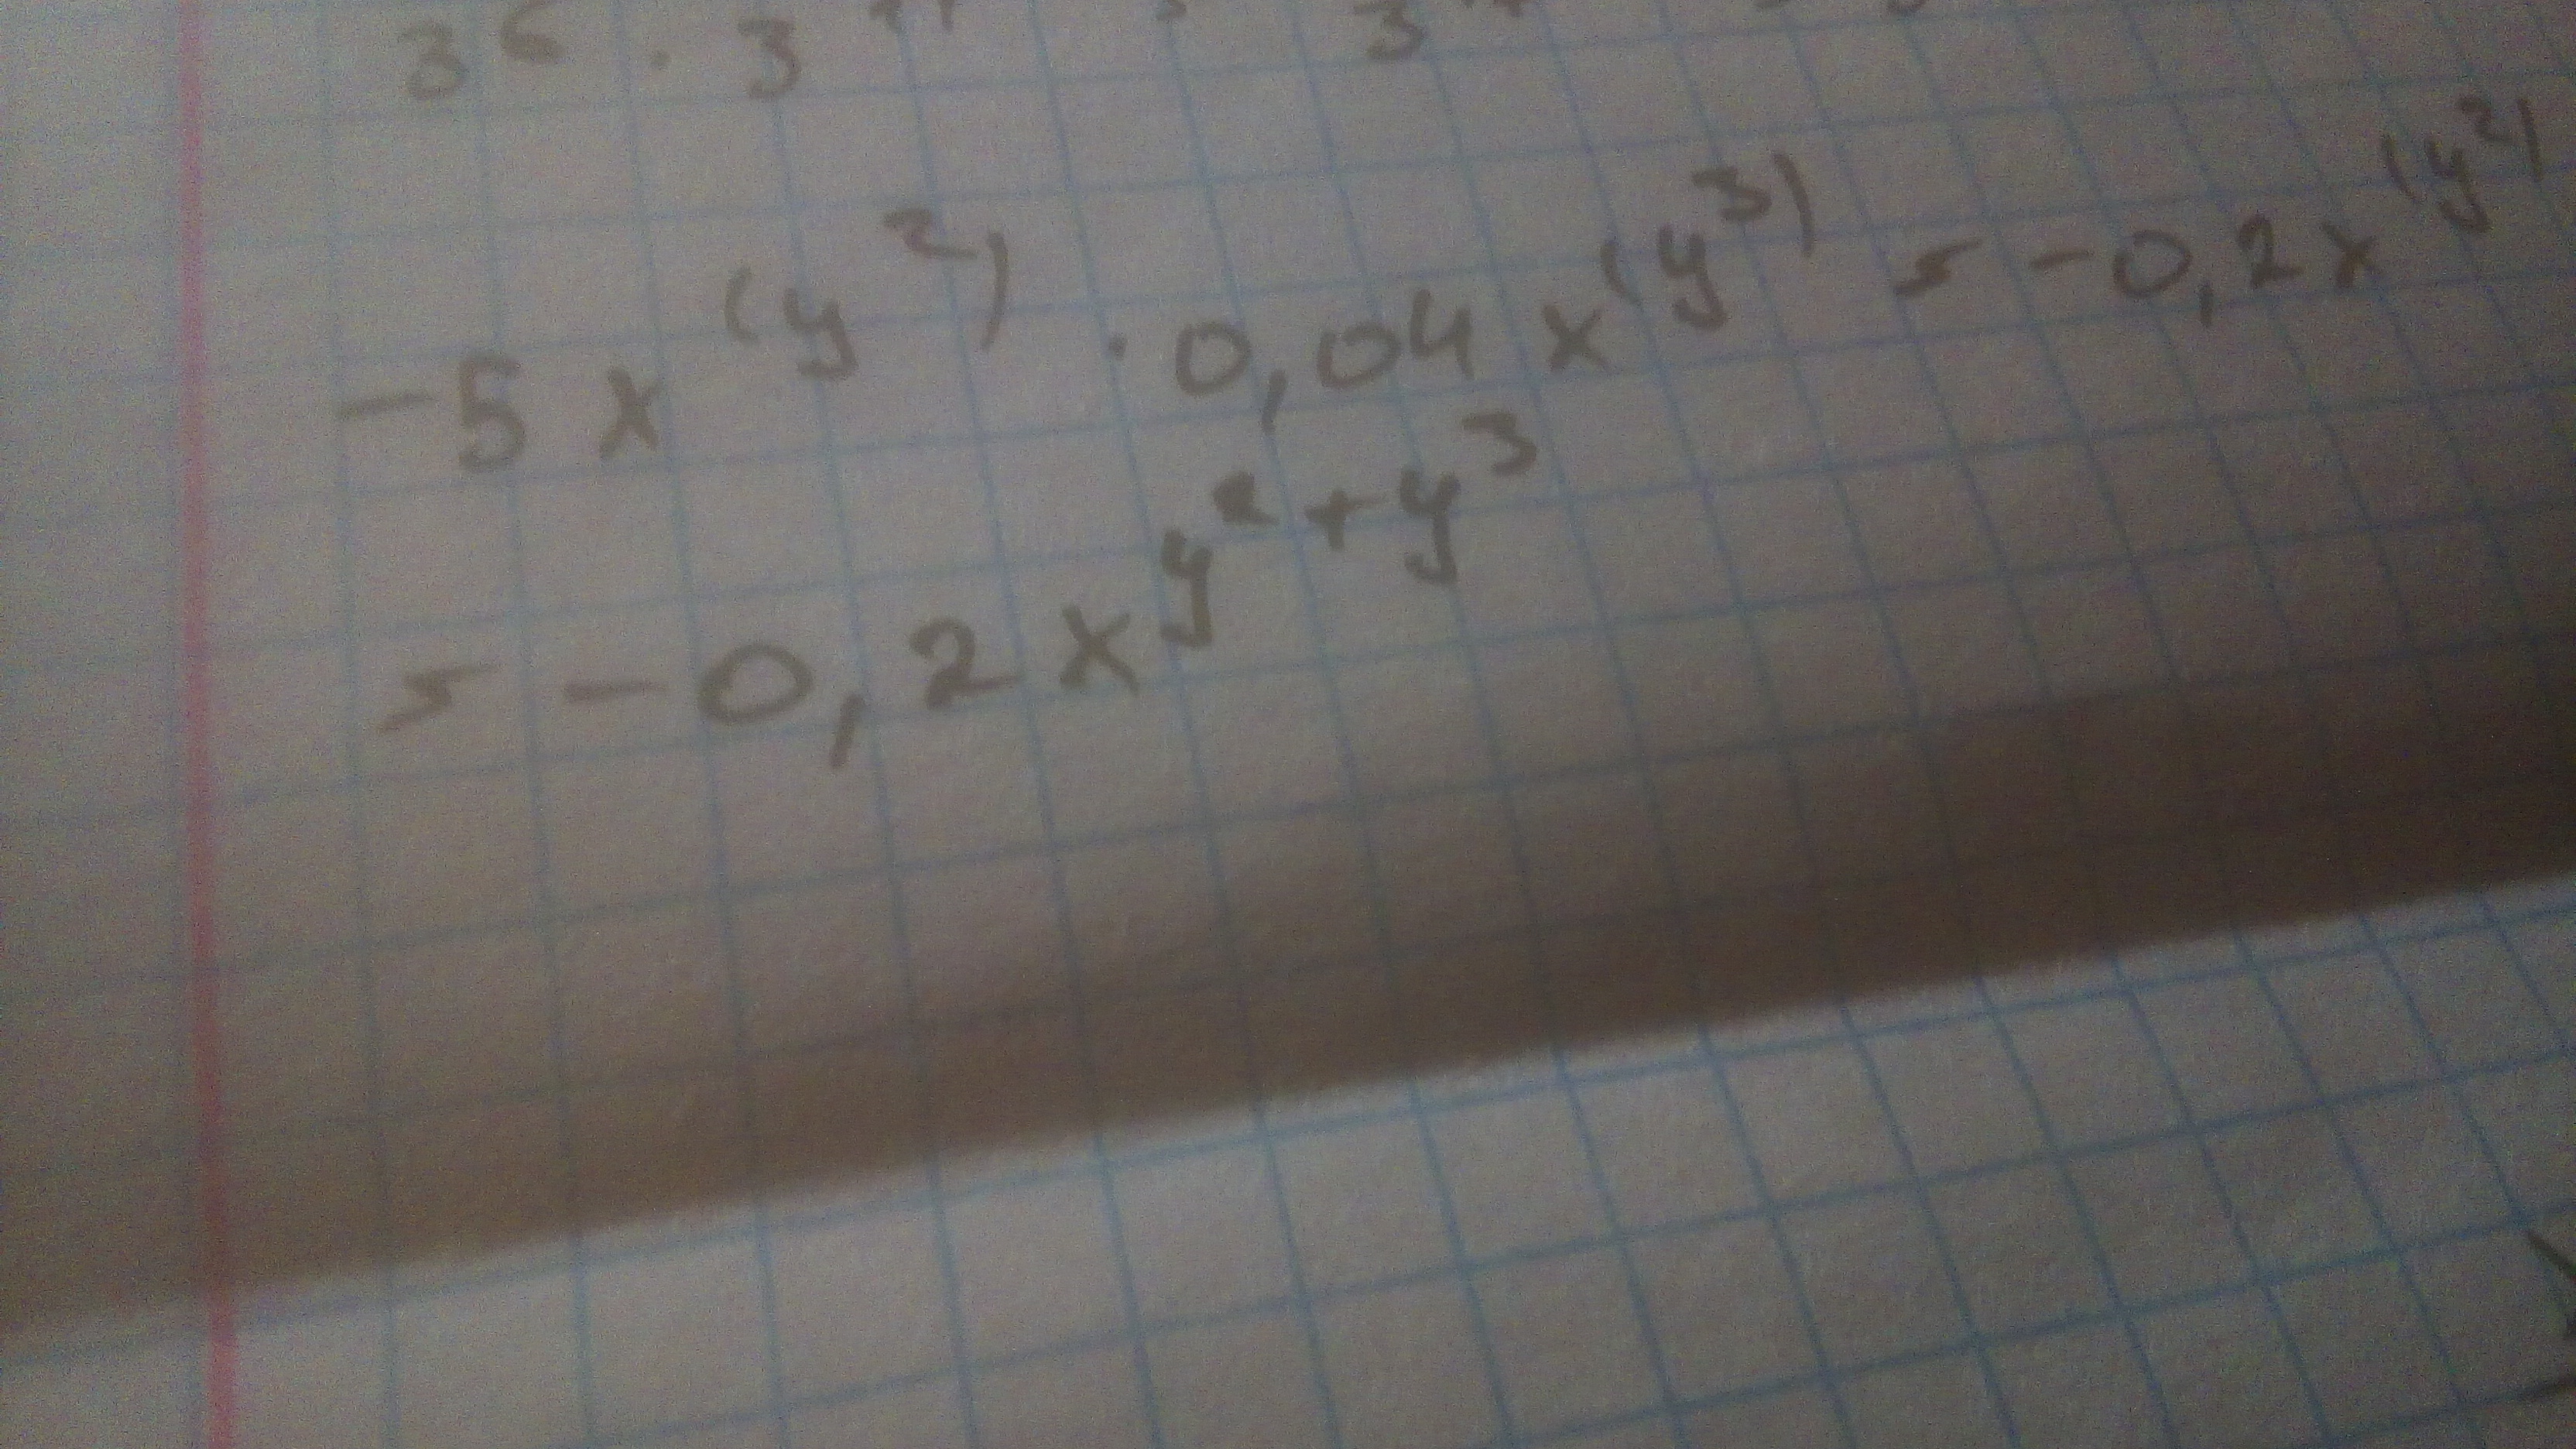 3⁶ · 3
-5x^(y²) · 0,04x^(y³) = -0,2x^(y²)
= -0,2x^y²+y³